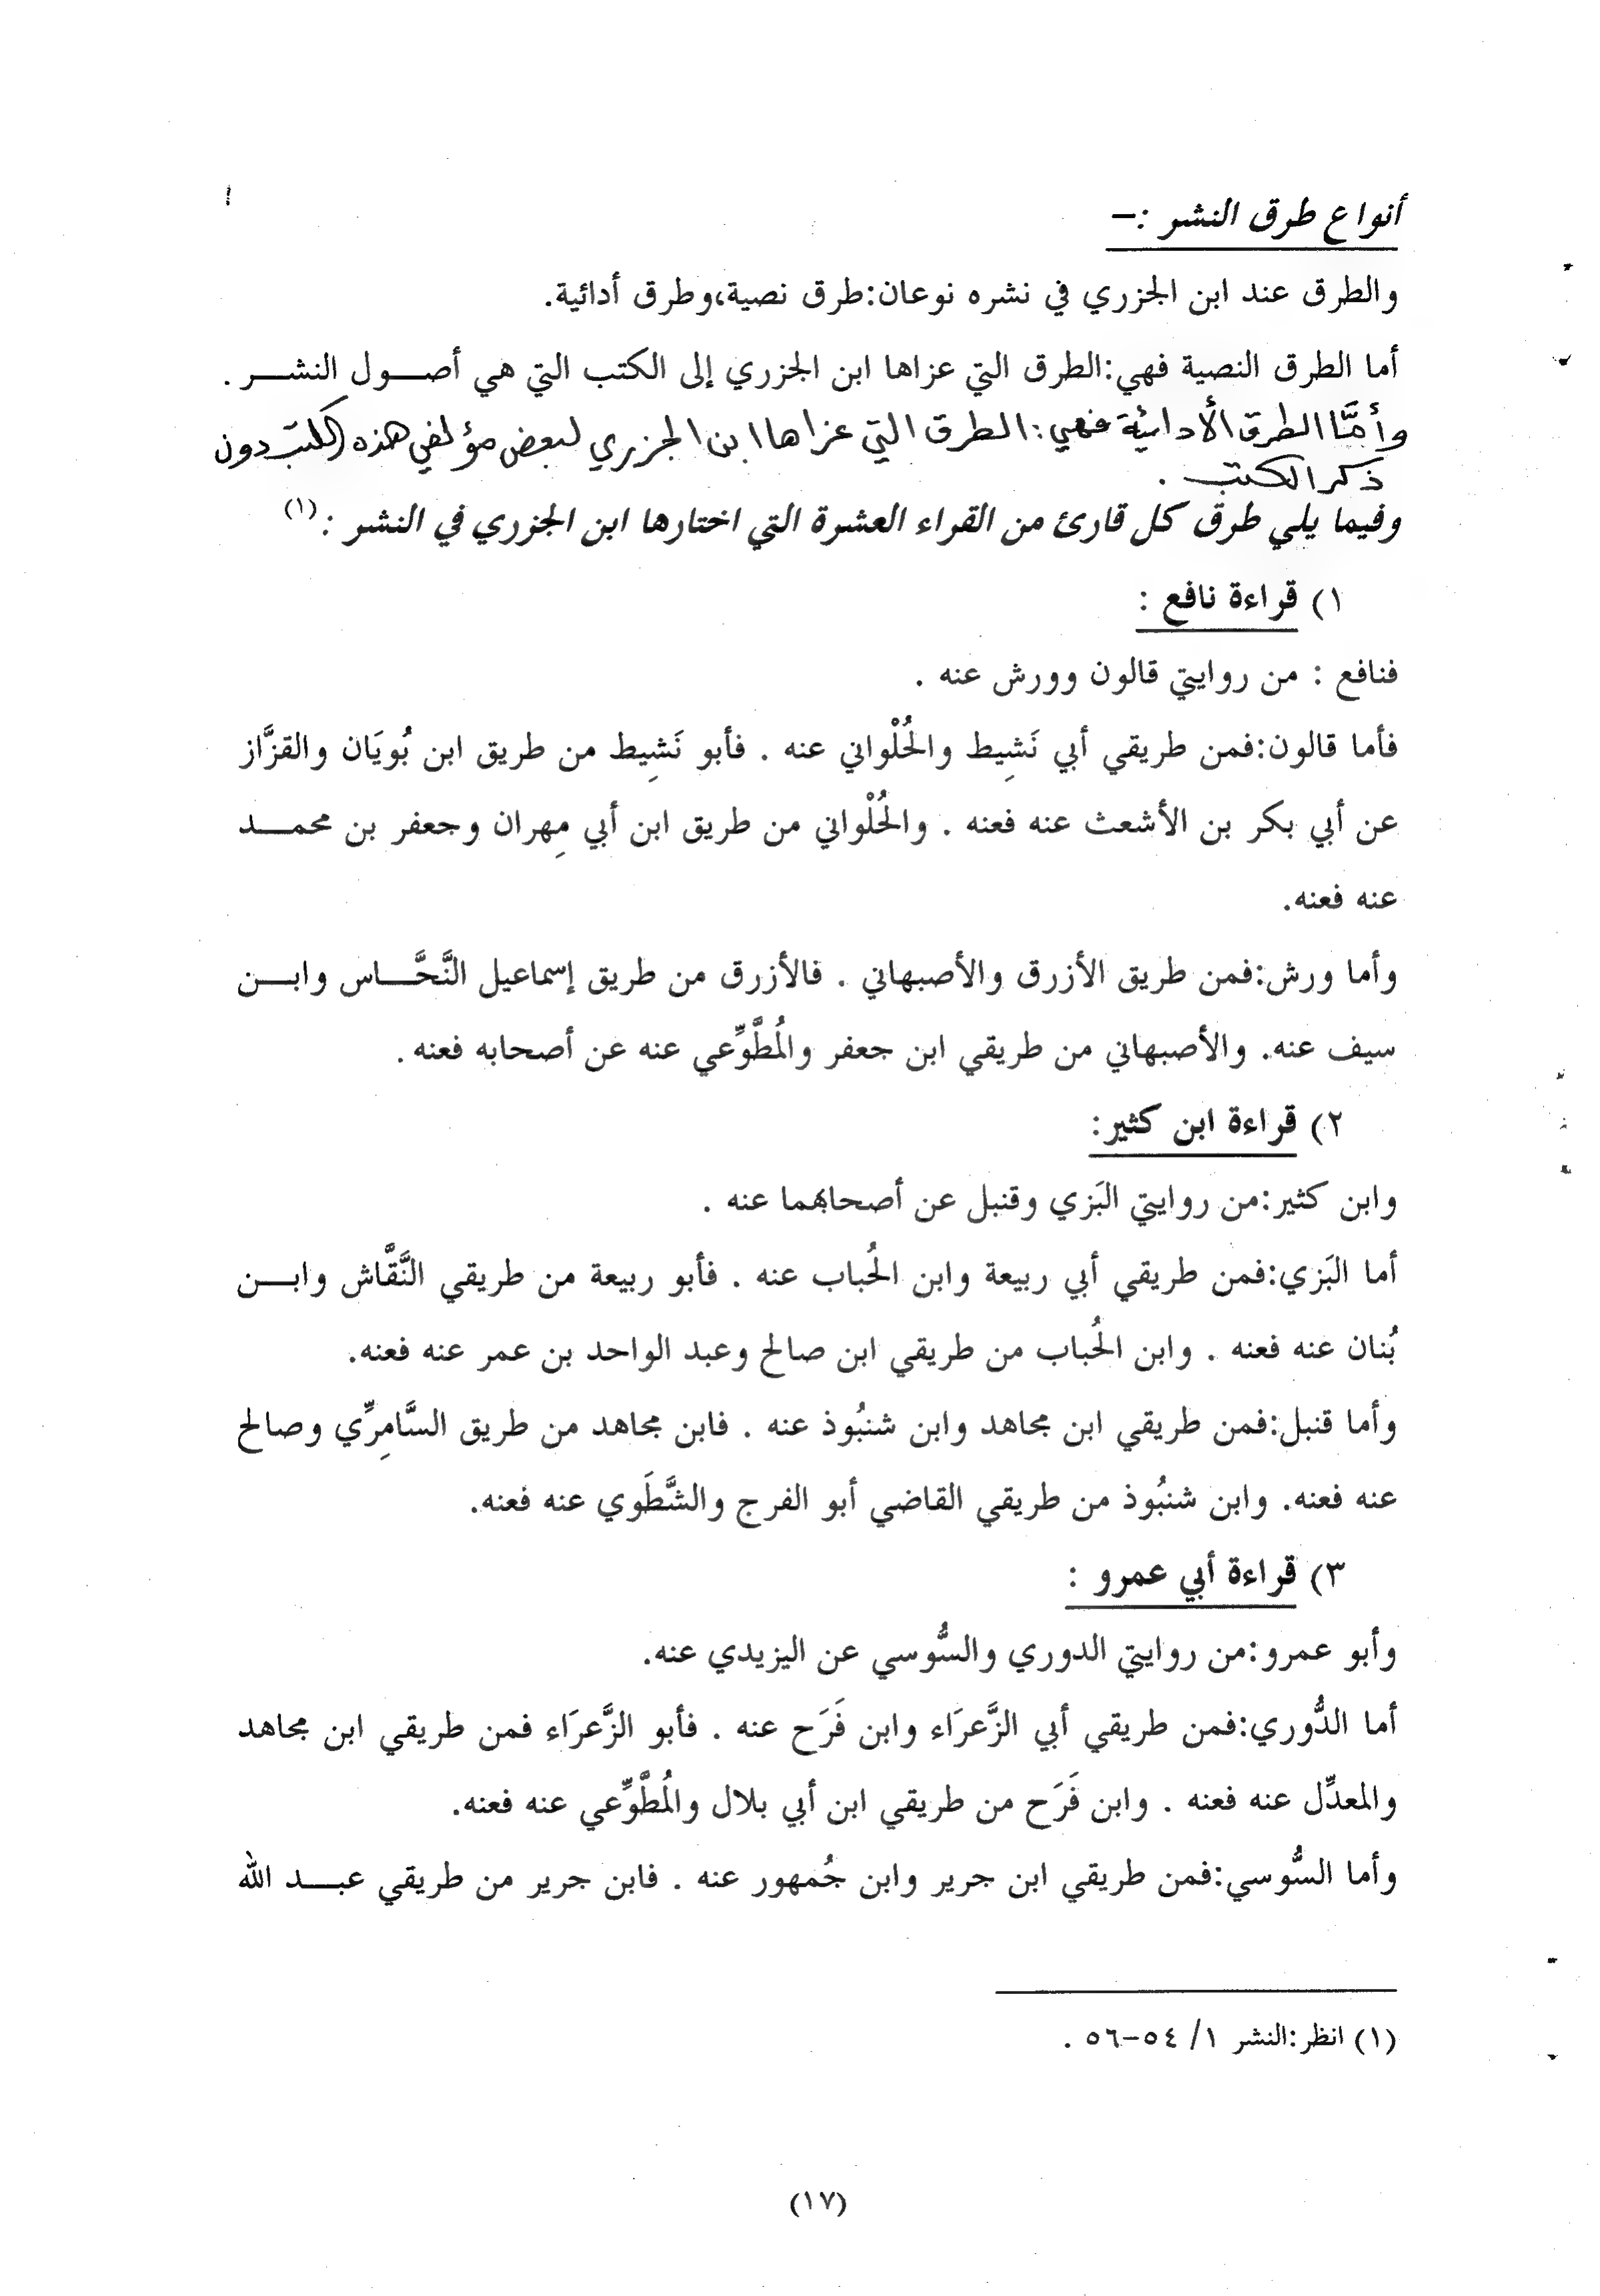 أنواع طرق النشر :–
والطرق عند ابن الجزري في نشره نوعان:طرق نصية،وطرق أدائية.
أما الطرق النصية فهي:الطرق التي عزاها ابن الجزري إلى الكتب التي هي أصول النشر .
وأمَّا الطرق الأدائية فهي: الطرق التي عزاها ابن الجزري لبعض مؤلفي هذه الكتب دون
ذكر الكتب .
وفيما يلي طرق كل قارئ من القراء العشرة التي اختارها ابن الجزري في النشر :(١)
١) قراءة نافع :
فنافع : من روايتي قالون وورش عنه .
فأما قالون:فمن طريقي أبي نَشِيط والحُلْواني عنه . فأبو نَشِيط من طريق ابن بُويَان والقزَّاز
عن أبي بكر بن الأشعث عنه فعنه . والحُلْواني من طريق ابن أبي مِهران وجعفر بن محمد
عنه فعنه.
وأما ورش:فمن طريق الأزرق والأصبهاني . فالأزرق من طريق إسماعيل النَّحَّاس وابن
سيف عنه. والأصبهاني من طريقي ابن جعفر والمُطَّوِّعي عنه عن أصحابه فعنه .
٢) قراءة ابن كثير:
وابن كثير:من روايتي البَزي وقنبل عن أصحابهما عنه .
أما البَزي:فمن طريقي أبي ربيعة وابن الحُباب عنه . فأبو ربيعة من طريقي النَّقَّاش وابن
بُنان عنه فعنه . وابن الحُباب من طريقي ابن صالح وعبد الواحد بن عمر عنه فعنه.
وأما قنبل:فمن طريقي ابن مجاهد وابن شنبُوذ عنه . فابن مجاهد من طريق السَّامِرِّي وصالح
عنه فعنه. وابن شنبُوذ من طريقي القاضي أبو الفرج والشَّطَوي عنه فعنه.
٣) قراءة أبي عمرو :
وأبو عمرو:من روايتي الدوري والسُّوسي عن اليزيدي عنه.
أما الدُّوري:فمن طريقي أبي الزَّعرَاء وابن فَرَح عنه . فأبو الزَّعرَاء فمن طريقي ابن مجاهد
والمعدِّل عنه فعنه . وابن فَرَح من طريقي ابن أبي بلال والمُطَّوِّعي عنه فعنه.
وأما السُّوسي:فمن طريقي ابن جرير وابن جُمهور عنه . فابن جرير من طريقي عبد الله
(١) انظر:النشر ١/ ٥٤–٥٦ .
(١٧)